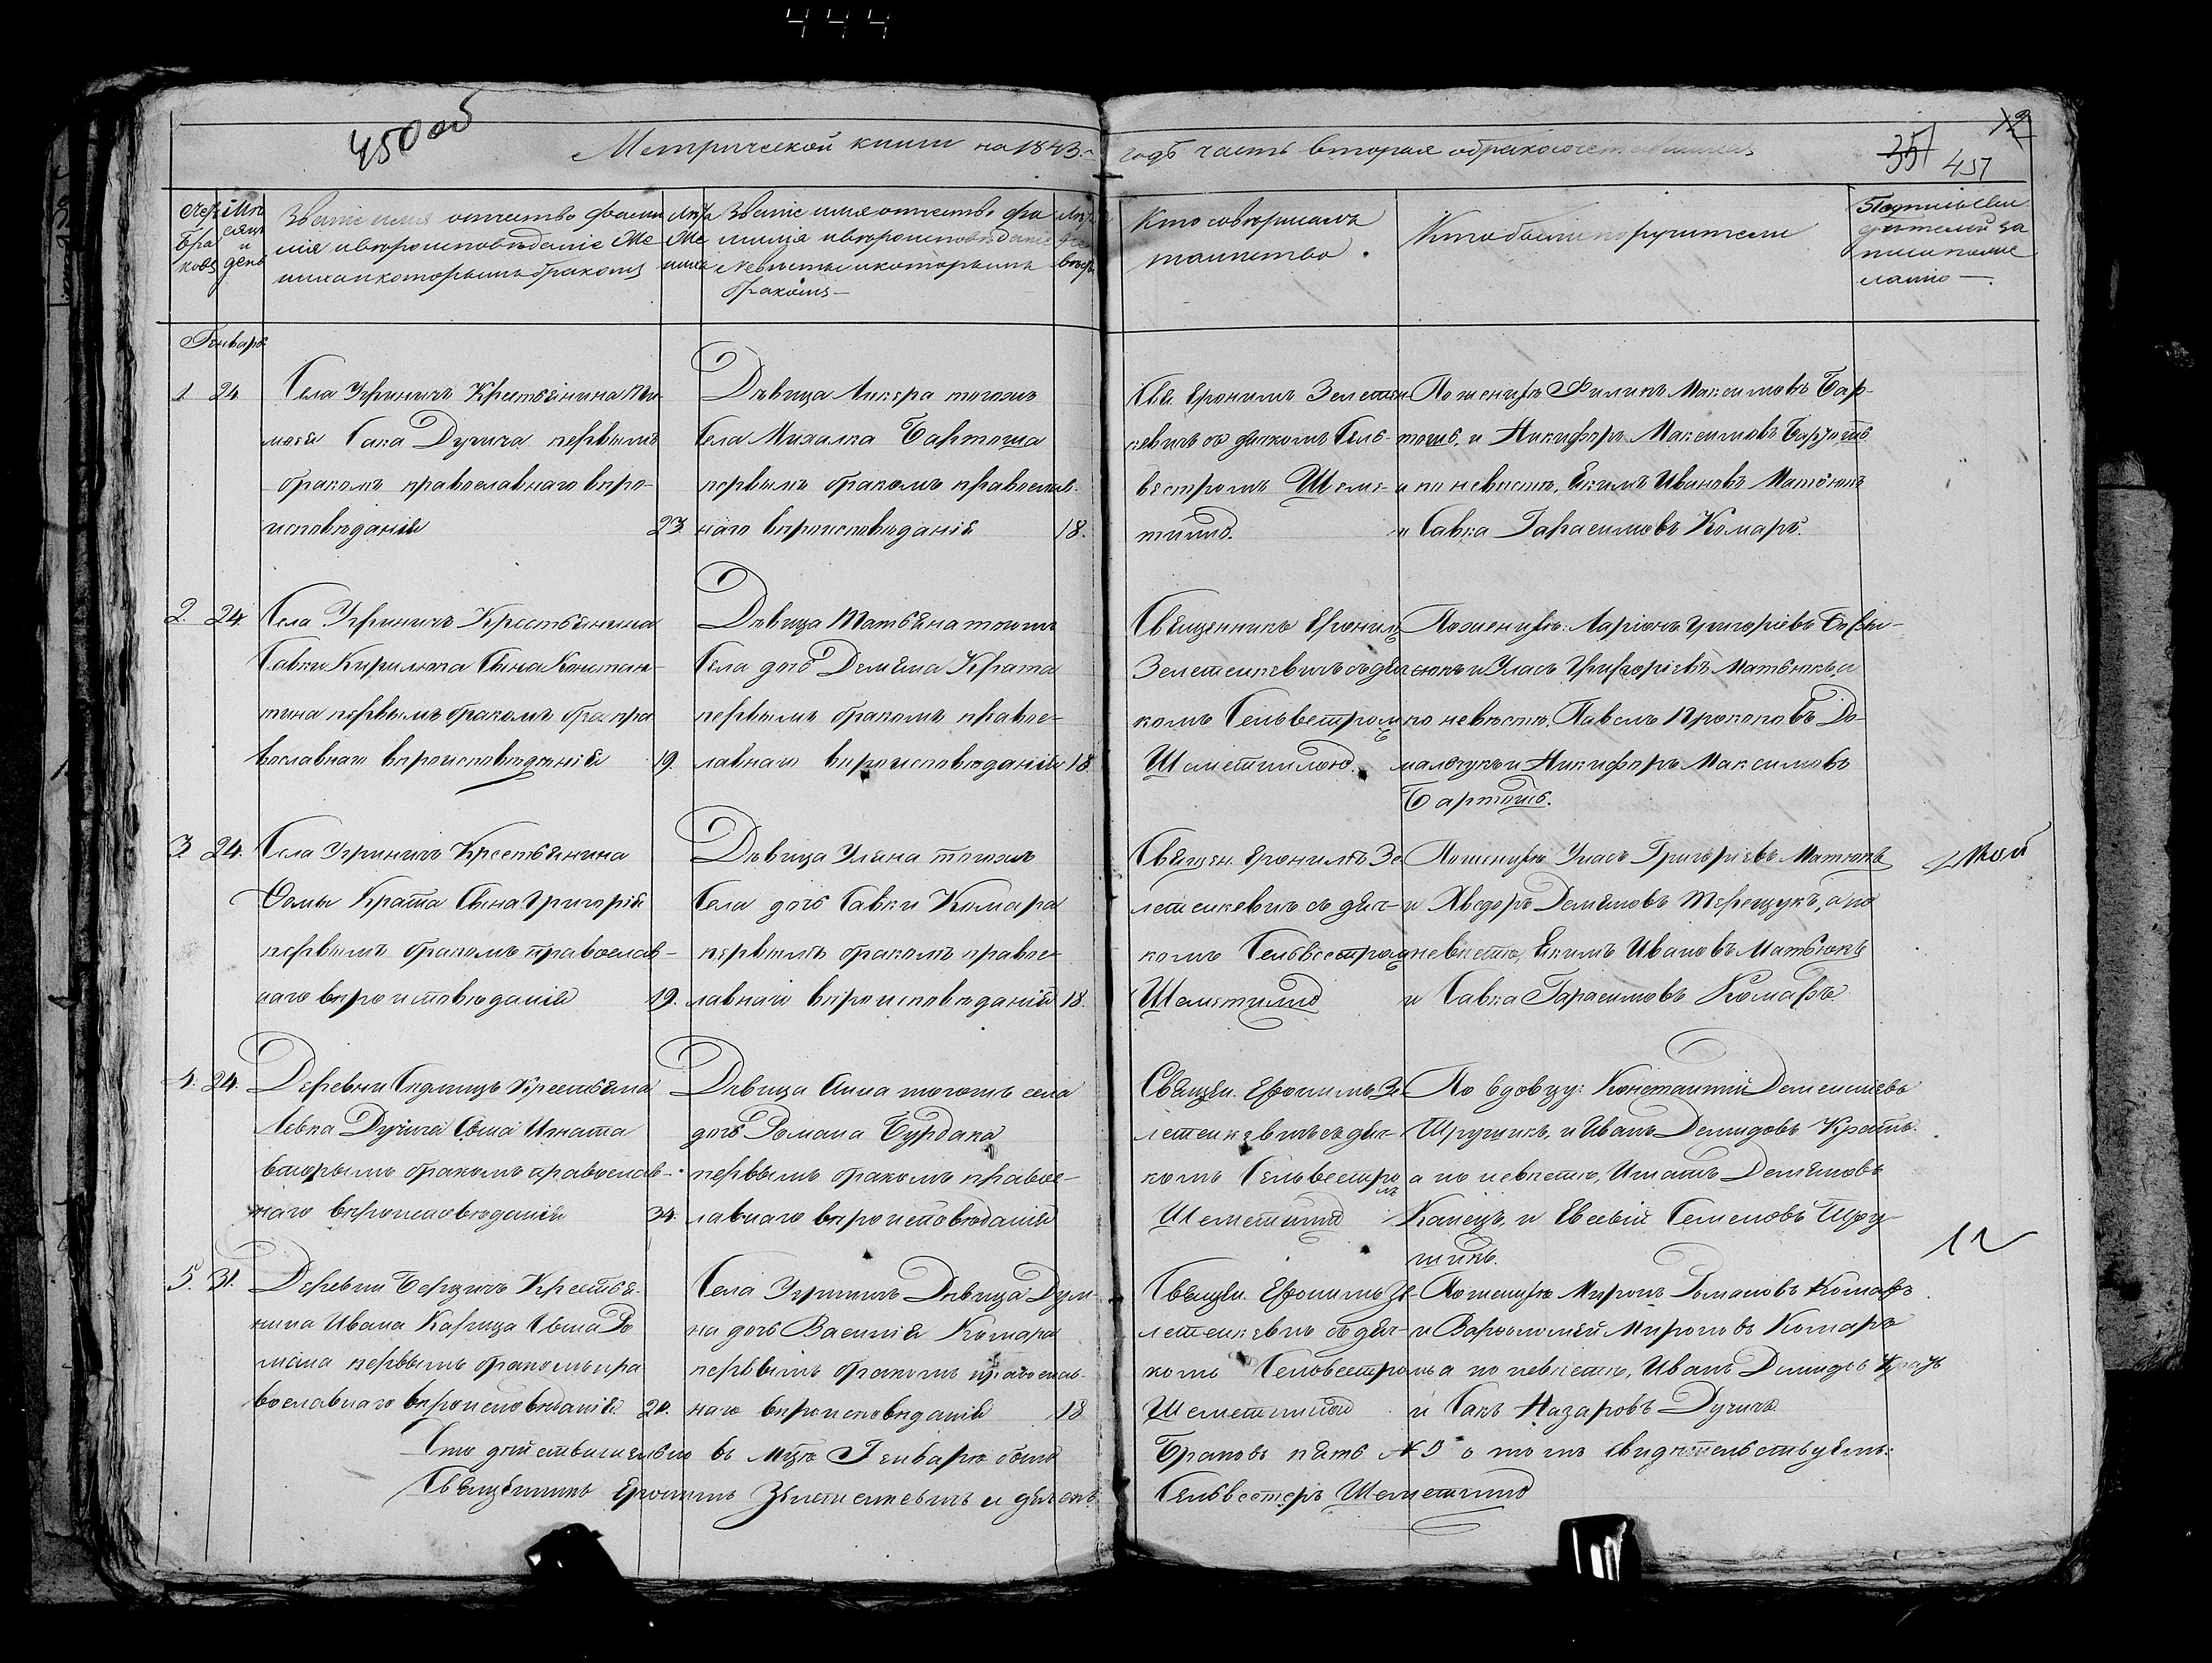 444
450 об
Метрической книги на 1843.
годъ часть вторая о бракосочетавшихся
451
Счетъ браковъ
Мѣсяцъ и день
Званіе имя отчество фами
лія и вѣроисповѣданіе Же
ниха и которымъ бракомъ
Лѣта Жениха
Званіе имя отчество фа
милія и вѣроисповѣданіе
Невѣсты и которымъ
бракомъ
Кто совершалъ
таинство.
Кто были поручители
Подпись сви
дѣтелей за
писи по же
ланію
Генварь
1 24
Села Угриничъ Крестьянина
Сака Дучича первымъ
бракомъ православнаго вѣро-
исповѣданія 23.
Дѣвица Ликера тогожъ
Села Михалка Бартоша
первымъ бракомъ православ-
наго вѣроисповѣданія 18.
Свя. Еронимъ Зелетин
кевичъ съ дячкомъ Силь-
вестромъ Шеме-
тилло.
По женихѣ Филипъ Максимовъ Бар-
тошъ, и Никифоръ Максимовъ Бартошъ
а по невѣстѣ, Екимъ Ивановъ Матьюкъ
и Савка Гарасимовъ Комаръ.
2. 24.
Села Угриничъ Крестьянина
Савки Кирилюка Сына Констан-
тина первымъ бракомъ пра
вославнаго вѣроисповѣданія 19.
Дѣвица Татьяна тогожъ
Села дочь Демяна Крата
первымъ бракомъ правос-
лавнаго вѣроисповѣданія 18
Священникъ Еронимъ
Зелетенкевичъ съ дяч
комъ Сильвестромъ
Шеметилло.
По женихѣ: Ларіонъ Григоріевъ
и Уласъ Григоріевъ Матьюкъ, а
по невѣстѣ, Павелъ Прокоповъ До-
малчукъ и Никифоръ Максимовъ
Бартошъ.
3 24.
Села Угриничъ Крестьянина
Фомы Крата Сына Григорія
первымъ бракомъ православ-
наго вѣроисповѣданія 19.
Дѣвица Уляна тогожъ
Села дочь Савки Комара
первымъ бракомъ правос-
лавнаго вѣроисповѣданія 18.
Священ. Еронимъ Зе
летенкевичъ съ дяч-
комъ Сильвестромъ
Шеметилло
По женихѣ Уласъ Григоріевъ Матюкъ
и Хведоръ Демяновъ Терещукъ, а по
невѣстѣ, Екимъ Ивановъ Матьюкъ
и Савка Гарасимовъ Комаръ
4. 24.
Деревни Седлищъ Крестьяна
Левка Дучича Сына Игната
вторымъ бракомъ православ-
наго вѣроисповѣданія 34.
Дѣвица Анна тогожъ села
дочь Романа Бурдака
первымъ бракомъ правос-
лавнаго вѣроисповѣданія
Священ. Еронимъ Зе-
летенкевичъ съ дяч-
комъ Сильвестромъ
Шеметилло
По вдовцу: Константій Дементиевъ
и Иванъ Демидовъ Кратъ.
а по невѣстѣ, Игнатъ Демяновъ
Канецъ, и Евсевій Семеновъ
5. 31.
Деревни Березичъ Крестья-
нина Ивана Карпца Сына Ро
мана первымъ бракомъ пра
вославнаго вѣроисповѣданія 20.
Села Угриничъ Дѣвица Дом-
на дочь Василія Комара
первымъ бракомъ православ-
наго вѣроисповѣданія 18
Священ. Еронимъ Зе-
летенкевичъ съ дяч-
комъ Сильвестромъ
Шеметилло
По женихѣ Миронъ Романовъ Комаръ
и Варфоломей Мироновъ Комаръ
а по невѣстѣ, Иванъ Демидовъ Кратъ
и Сакъ Назаровъ Дучичъ
Что дѣйствительно въ Мцѣ Генварѣ было
Браковъ пять № 5 о томъ свидѣтельствуемъ:
Священникъ Еронимъ Зелетенкевичъ и дячекъ
Сильвестеръ Шеметилло